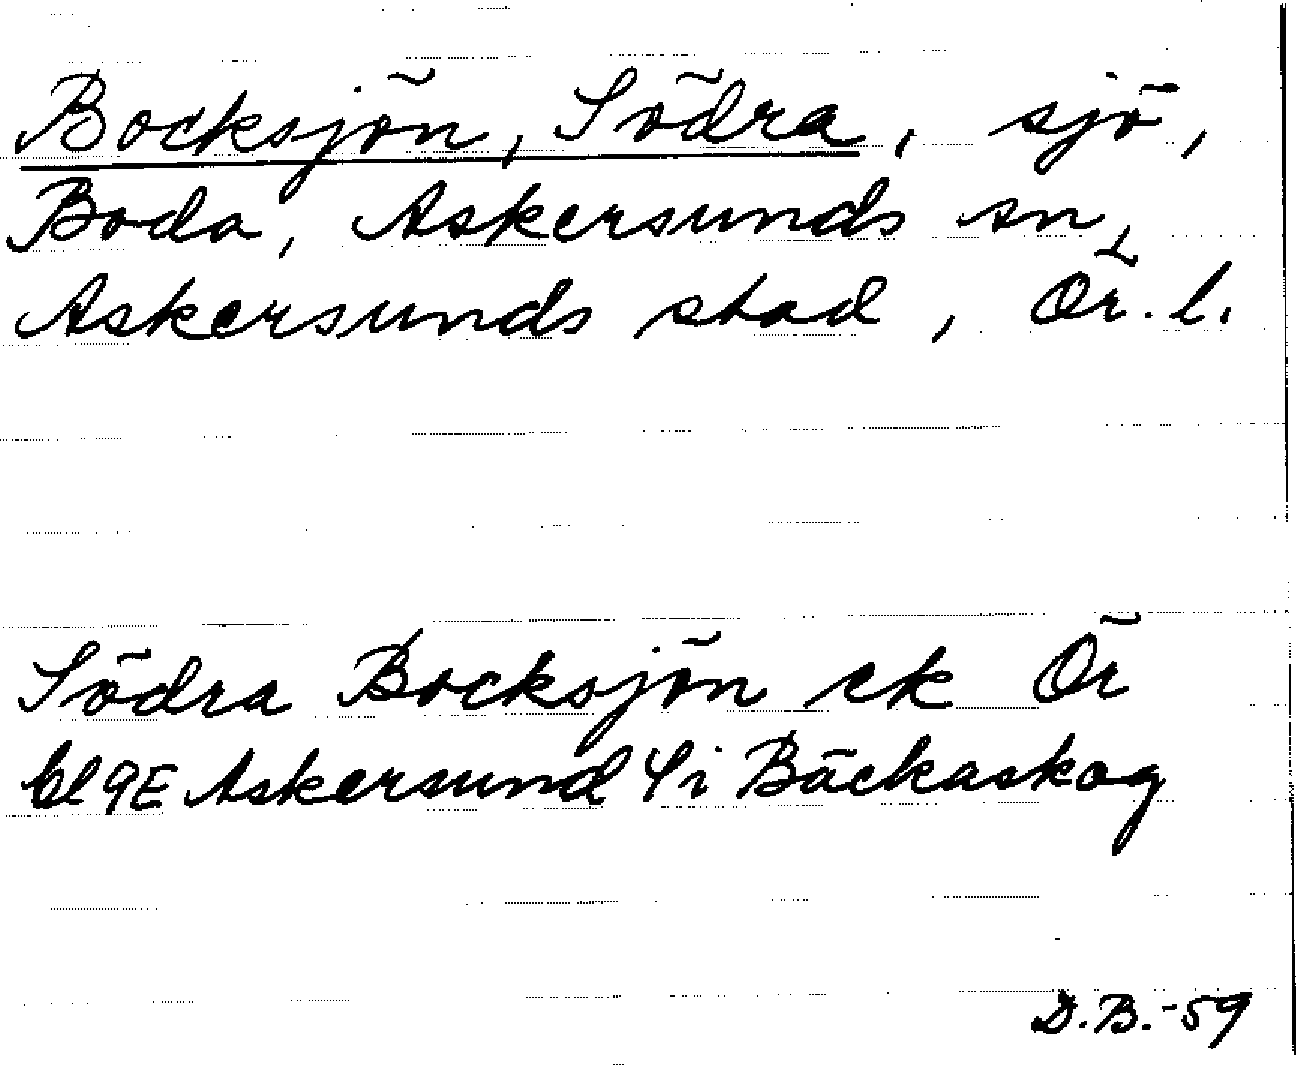 Bocksjön, Södra, sjö,
Boda, Askersunds sn,
Askersunds stad, Ör. l.
Södra Bocksjön ek Ör
bl 9E Askersund Si Bäckaskog
D.B.-59